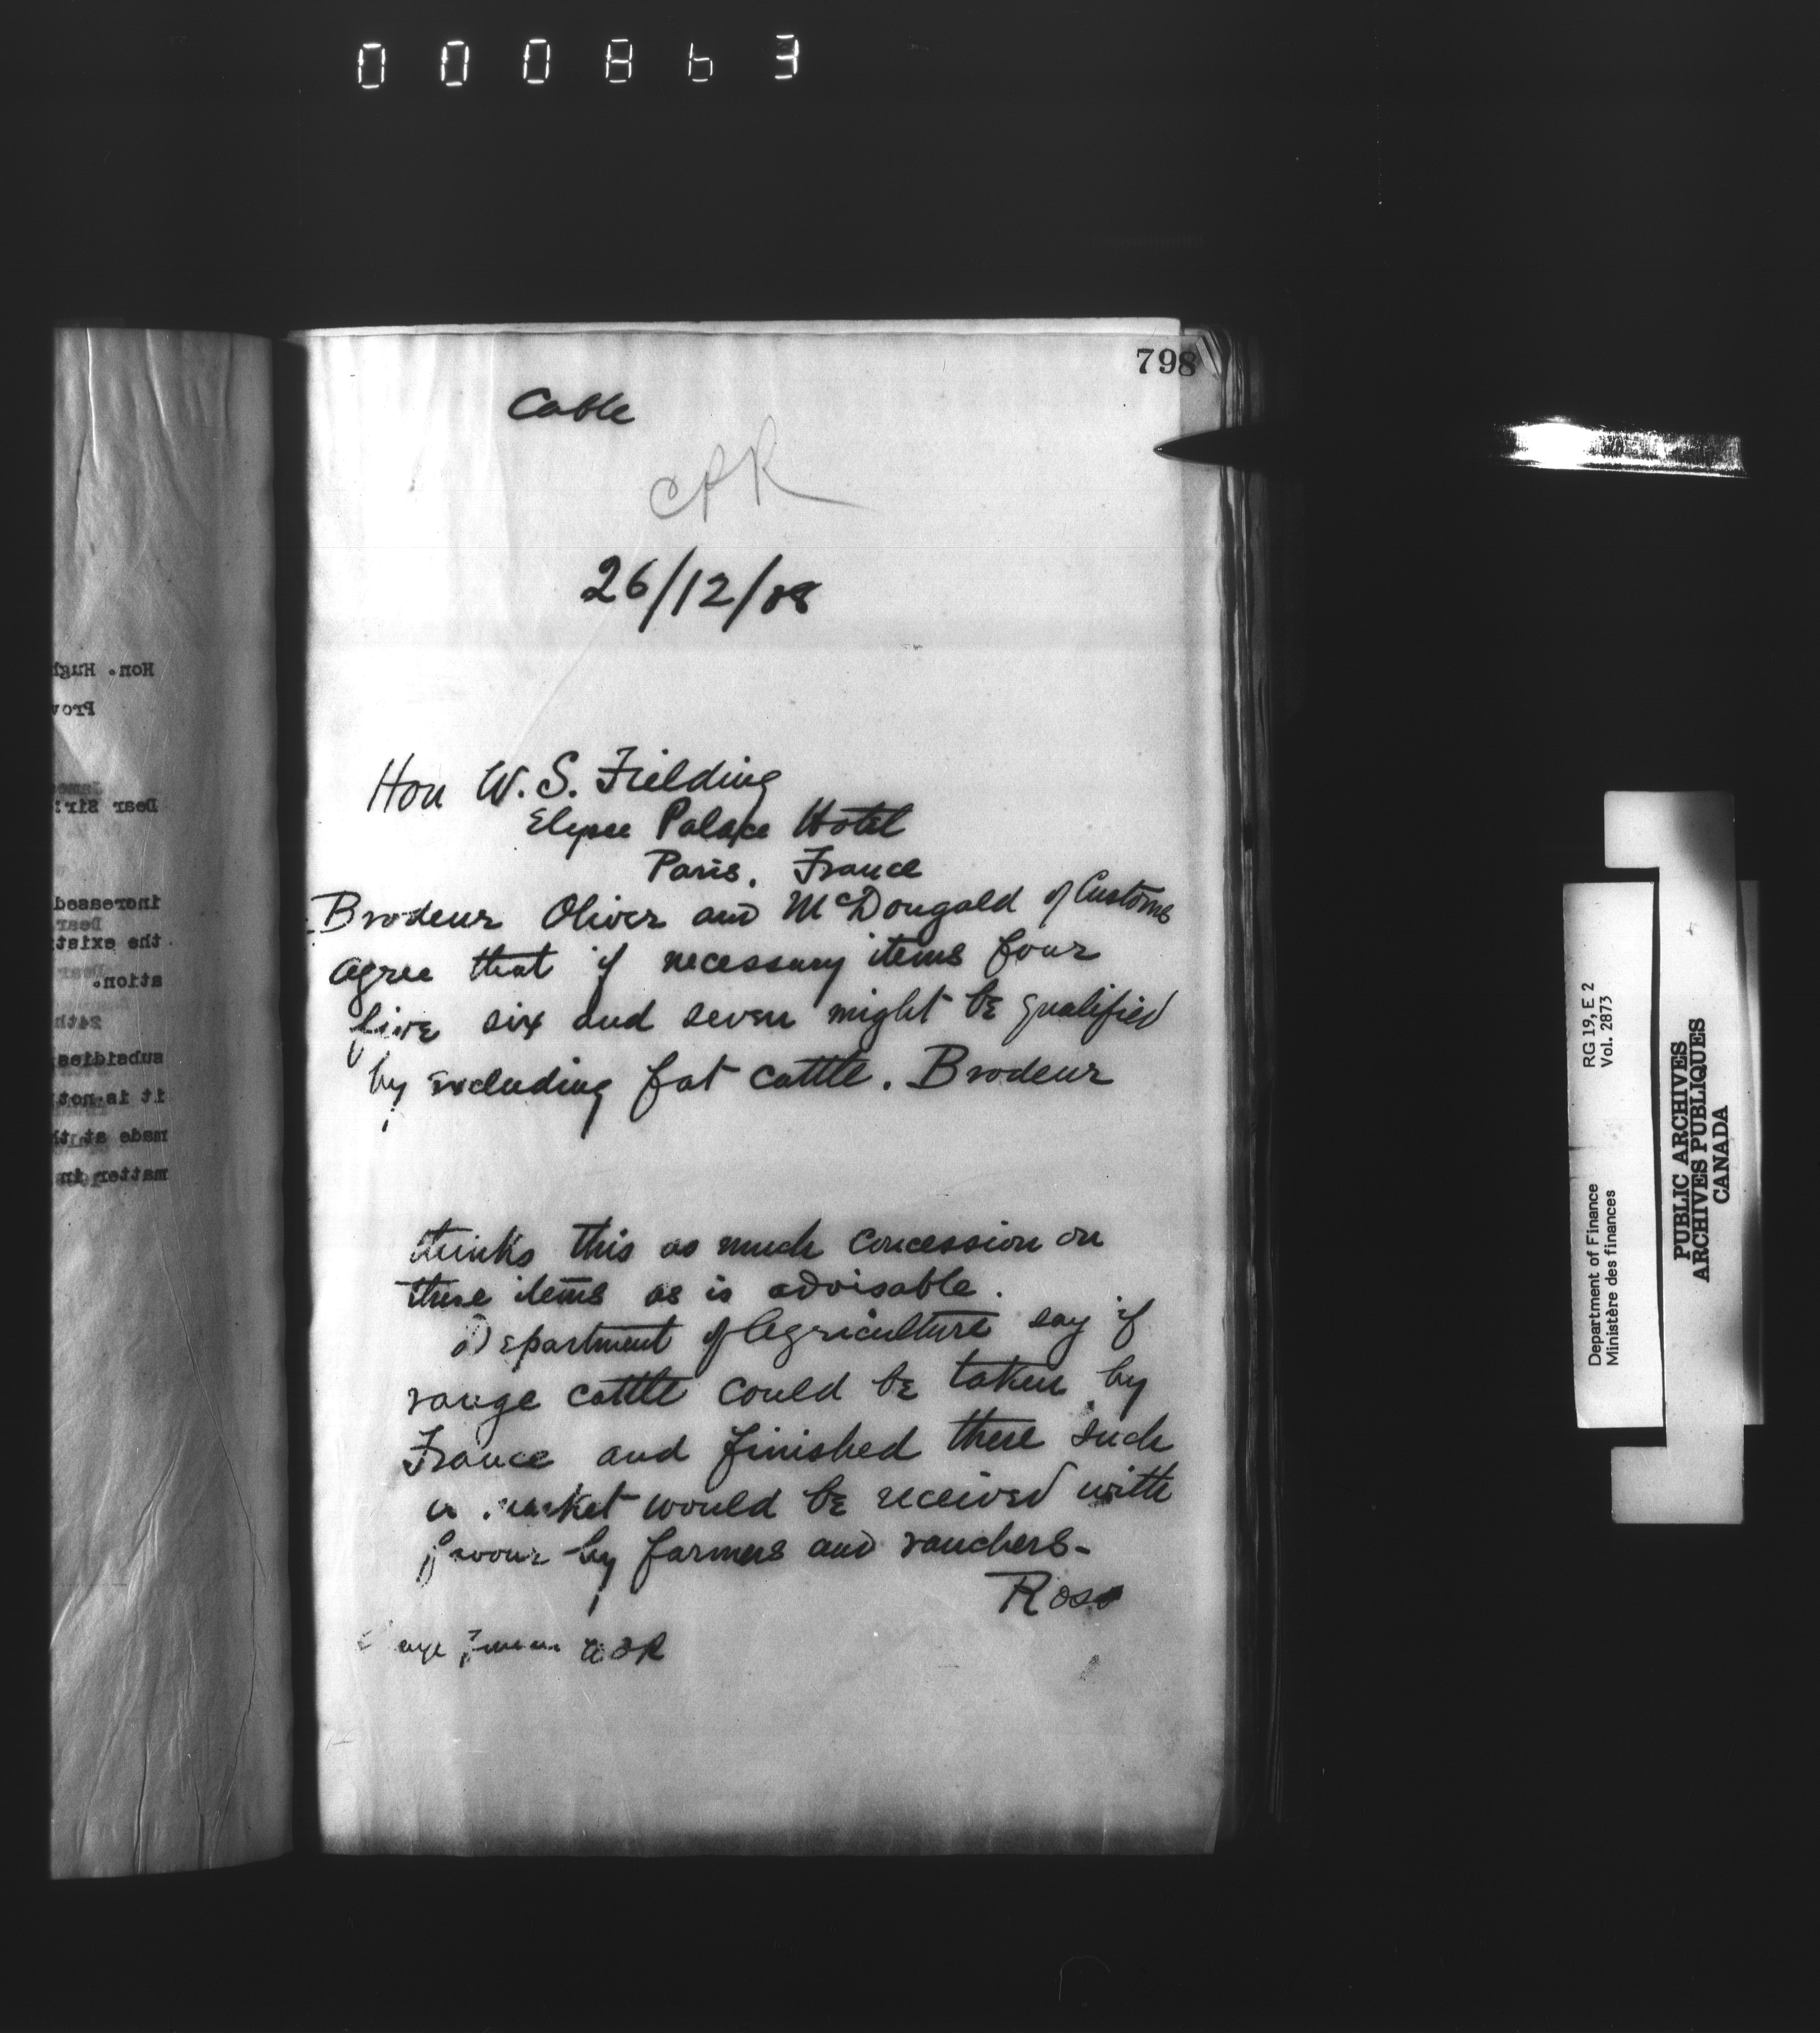 000863
798
Cable
CPR
26/12/08
Hon W. S. Fielding
Elysee Palace Hotel
Paris, France
Brodeur Oliver and McDougald of Customs
agree that if necessary items four
five six and seven might be qualified
by excluding fat cattle. Brodeur
thinks this as much concession on
these items as is advisable.
Department of Agriculture say if
range cattle could be taken by
France and finished there such
a market would be received with
favour by farmers and ranchers-
Ross
Hon. Hugh
Prov
Dear Sir:
increased
the exist
ation.
24th
subsidies
it is not
made at th
matter in
Department of Finance RG 19, E 2
Ministère des finances Vol. 2873
PUBLIC ARCHIVES
ARCHIVES PUBLIQUES
CANADA